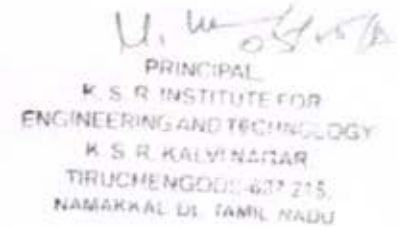 PRINCIPAL
K. S. R. INSTITUTE FOR
ENGINEERING AND TECHNOLOGY
K. S. R. KALVI NAGAR
TIRUCHENGODE-637 215,
NAMAKKAL Dt. TAMIL NADU